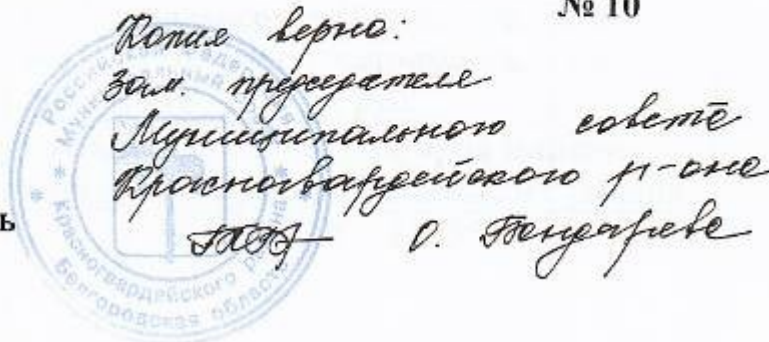 № 10
Копия верна:
Зам. председателя
Муниципального совета
Красногвардейского р-она
О. Бондарева
ь
Российская Федерация
Муниципальный
Красногвардейского района
Белгородская область